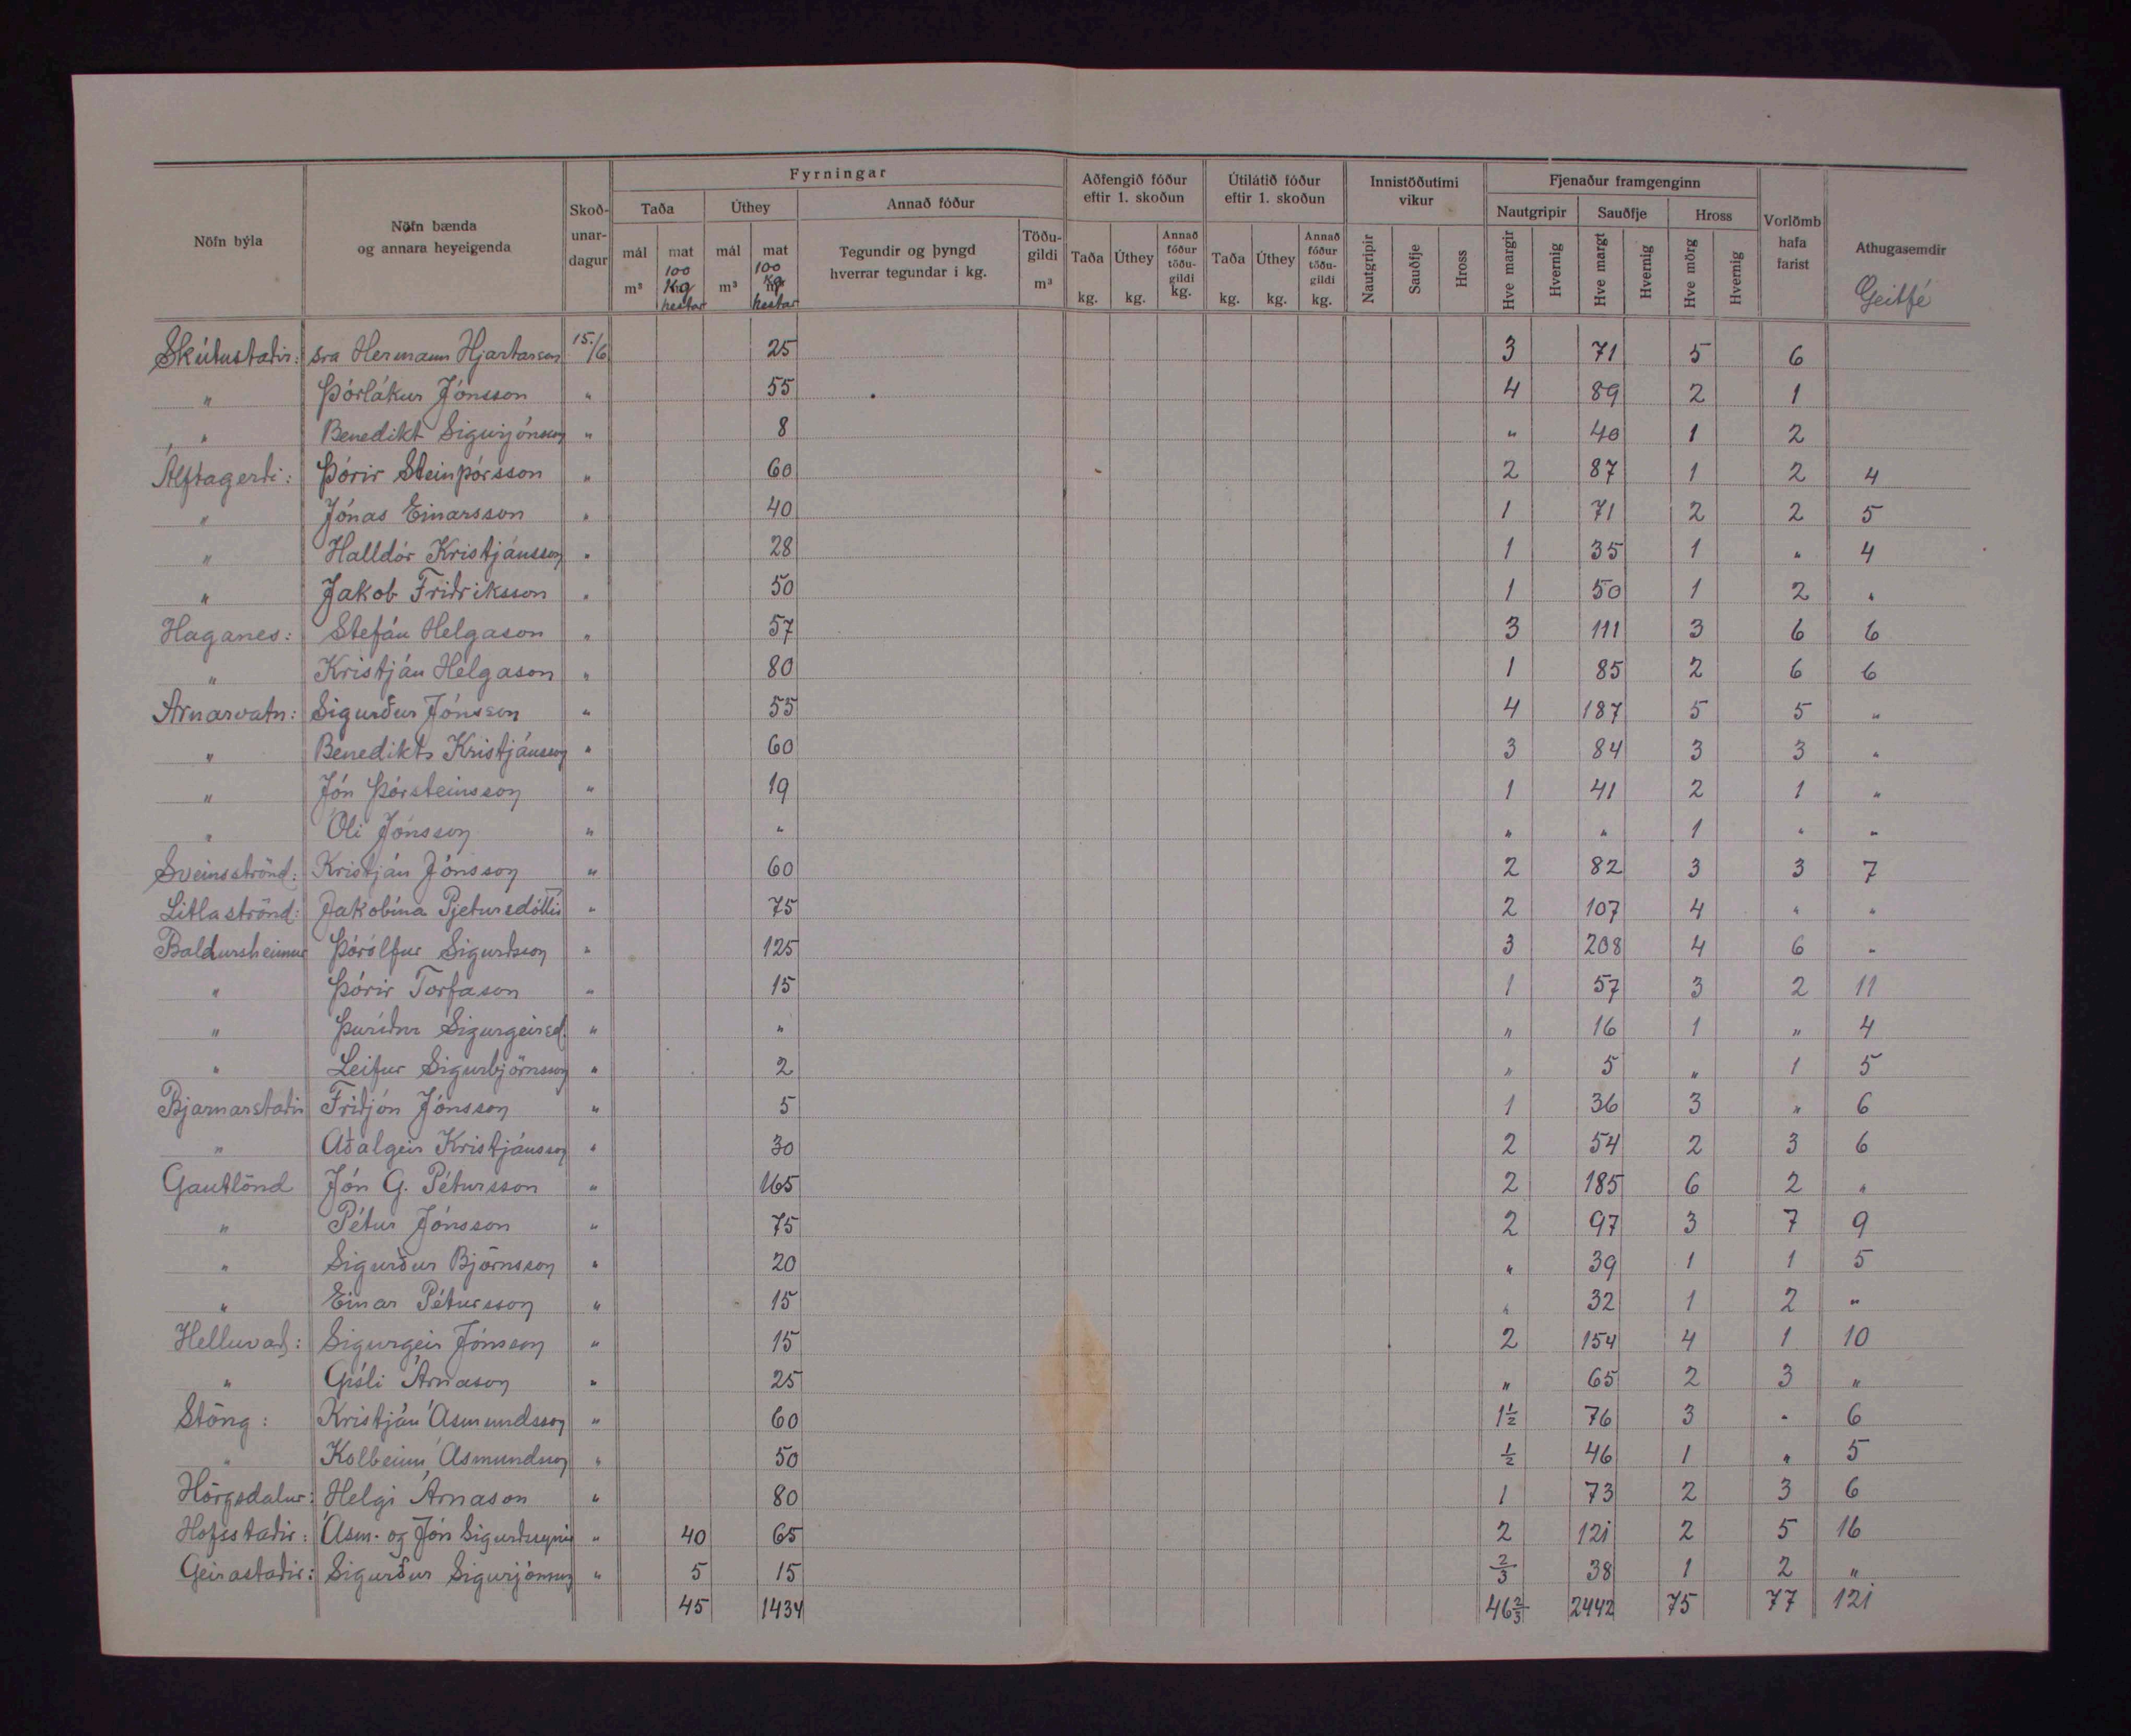 Nöfn býla | Nöfn bænda og annara heyeigenda | Skoðunardagur | Fyrningar | Aðfengið fóður eftir 1. skoðun | Útilátið fóður eftir 1. skoðun | Innistöðutími vikur | Fjenaður framgenginn | Vorlömb hafa farist | Athugasemdir
Taða | Úthey | Annað fóður | Nautgripir | Sauðfje | Hross
mál m³ | mat 100 Kg hestar | mál m³ | mat 100 Kg hestar | Tegundir og þyngd hverrar tegundar í kg. | Töðugildi m³ | Taða kg. | Úthey kg. | Annað fóður töðugildi kg. | Taða kg. | Úthey kg. | Annað fóður töðugildi kg. | Nautgripir | Sauðfje | Hross | Hve margir | Hvernig | Hve margt | Hvernig | Hve mörg | Hvernig | Geitfé
Skútustaðir: | sra Hermann Hjartarson | 15./6 | 25 | 3 | 71 | 5 | 6
" | Þórlákur Jónsson | " | 55 | 4 | 89 | 2 | 1
" | Benedikt Sigurjónsson | " | 8 | " | 40 | 1 | 2
Álftagerði: | Þórir Steinþórsson | " | 60 | 2 | 87 | 1 | 2 | 4
" | Jónas Einarsson | " | 40 | 1 | 71 | 2 | 2 | 5
" | Halldór Kristjánsson | " | 28 | 1 | 35 | 1 | " | 4
" | Jakob Friðriksson | " | 50 | 1 | 50 | 1 | 2 | "
Haganes: | Stefán Helgason | " | 57 | 3 | 111 | 3 | 6 | 6
" | Kristján Helgason | " | 80 | 1 | 85 | 2 | 6 | 6
Arnarvatn: | Sigurður Jónsson | " | 55 | 4 | 187 | 5 | 5 | "
" | Benedikt Kristjánsson | " | 60 | 3 | 84 | 3 | 3 | "
" | Jón Þórsteinsson | " | 19 | 1 | 41 | 2 | 1 | "
" | Óli Jónsson | " | " | " | " | 1 | " | "
Sveinsströnd: | Kristján Jónsson | " | 60 | 2 | 82 | 3 | 3 | 7
Litlaströnd: | Jakobína Pjetursdóttir | " | 75 | 2 | 107 | 4 | " | "
Baldursheimur | Þórólfur Sigurðsson | " | 125 | 3 | 208 | 4 | 6 | "
" | Þórir Torfason | " | 15 | 1 | 57 | 3 | 2 | 11
" | Þuríður Sigurgeirsd. | " | " | " | 16 | 1 | " | 4
" | Leifur Sigurbjörnsson | " | 2 | " | 5 | " | 1 | 5
Bjarnarstaðir | Friðjón Jónsson | " | 5 | 1 | 36 | 3 | " | 6
" | Aðalgeir Kristjánsson | " | 30 | 2 | 54 | 2 | 3 | 6
Gautlönd | Jón G. Pétursson | " | 165 | 2 | 185 | 6 | 2 | "
" | Pétur Jónsson | " | 75 | 2 | 97 | 3 | 7 | 9
" | Sigurður Björnsson | " | 20 | " | 39 | 1 | 1 | 5
" | Einar Pétursson | " | 15 | " | 32 | 1 | 2 | "
Helluvað: | Sigurgeir Jónsson | " | 15 | 2 | 154 | 4 | 1 | 10
" | Gísli Árnason | " | 25 | " | 65 | 2 | 3 | "
Stöng: | Kristján Ásmundsson | " | 60 | 1½ | 76 | 3 | " | 6
" | Kolbeinn Ásmundsson | " | 50 | ½ | 46 | 1 | " | 5
Hörgsdalur: | Helgi Árnason | " | 80 | 1 | 73 | 2 | 3 | 6
Hofsstaðir: | Ásm. og Jón Sigurðssynir | " | 40 | 65 | 2 | 121 | 2 | 5 | 16
Geirastaðir: | Sigurður Sigurjónsson | " | 5 | 15 | 2/3 | 38 | 1 | 2 | "
45 | 1434 | 46 2/3 | 2442 | 75 | 77 | 121